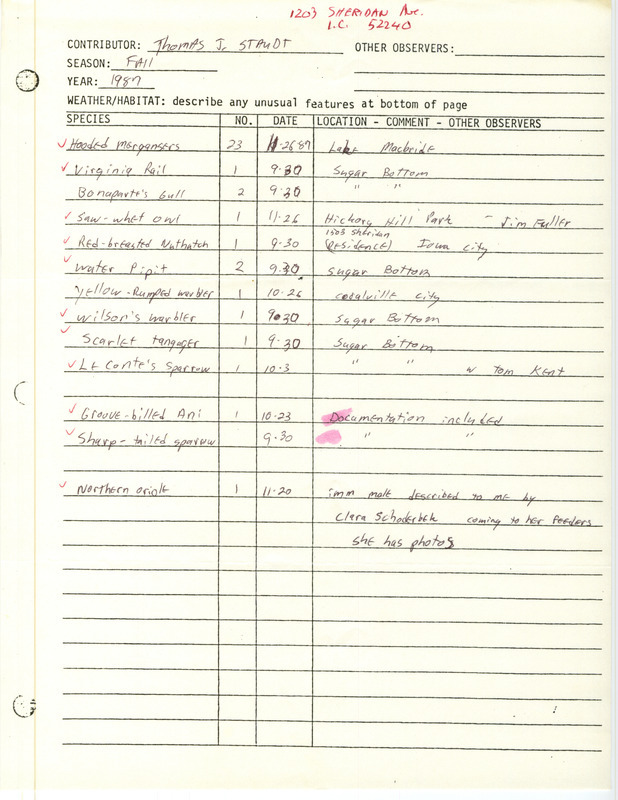 1203 SHERIDAN Ave.
I.C. 52240
CONTRIBUTOR: Thomas J. STAUDT OTHER OBSERVERS:
SEASON: FAll
YEAR: 1987
WEATHER/HABITAT: describe any unusual features at bottom of page
SPECIES NO. DATE LOCATION - COMMENT - OTHER OBSERVERS
Hooded Mergansers 23 11-26 87 Lake Macbride
Virginia Rail 1 9-30 Sugar Bottom
Bonaparte's Gull 2 9-30 " "
Saw-whet owl 1 11-26 Hickory Hill Park - Jim Fuller
1203 Sheridan
Red-breasted Nuthatch 1 9-30 (Residence) Iowa City
Water Pipit 2 9-30 Sugar Bottom
Yellow-Rumped warbler 1 10-26 coralville city
Wilson's warbler 1 9-30 Sugar Bottom
Scarlet tanager 1 9-30 Sugar Bottom
Le Conte's Sparrow 1 10-3 " " w Tom Kent
Groove-billed Ani 1 10-23 Documentation included
Sharp-tailed sparrow 9-30 " "
Northern oriole 1 11-20 imm male described to me by
Clara Schoderbek coming to her feeders
She has photos